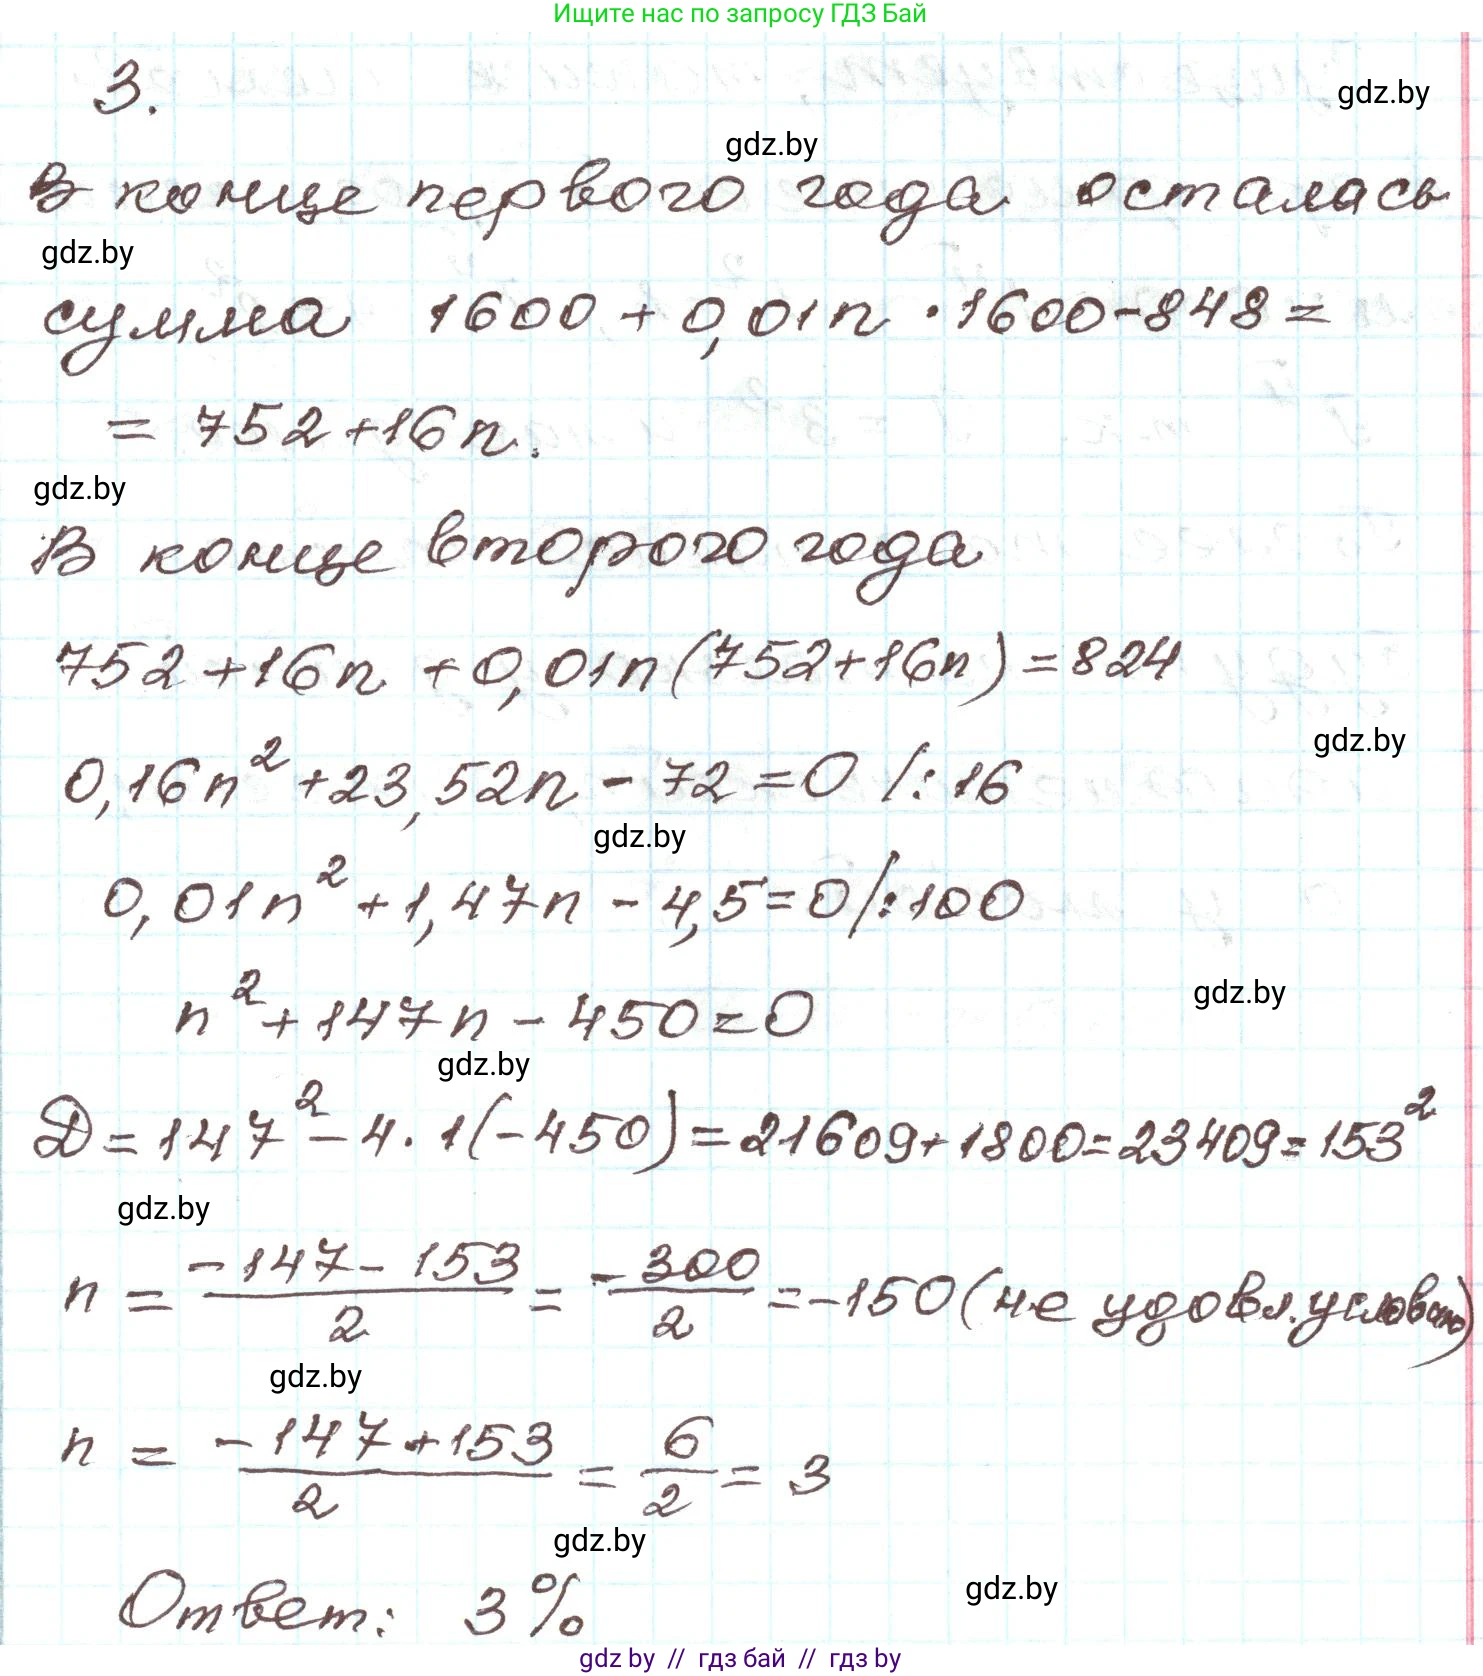 Ищите нас по запросу ГДЗ Бай
3.
gdz.by
gdz.by
В конце первого года осталась
gdz.by
сумма 1600 + 0,01n · 1600 - 848 =
= 752 + 16n.
gdz.by
В конце второго года
752 + 16n + 0,01n(752 + 16n) = 824
gdz.by
0,16n² + 23,52n - 72 = 0 /: 16
gdz.by
0,01n² + 1,47n - 4,5 = 0 /: 100
n² + 147n - 450 = 0
gdz.by
gdz.by
Д = 147² - 4 · 1(-450) = 21609 + 1800 = 23409 = 153²
gdz.by
n = (-147 - 153)/2 = -300/2 = -150 (не удовл. условию)
gdz.by
n = (-147 + 153)/2 = 6/2 = 3
gdz.by
gdz.by
Ответ: 3%
gdz by // гдз бай // гдз by